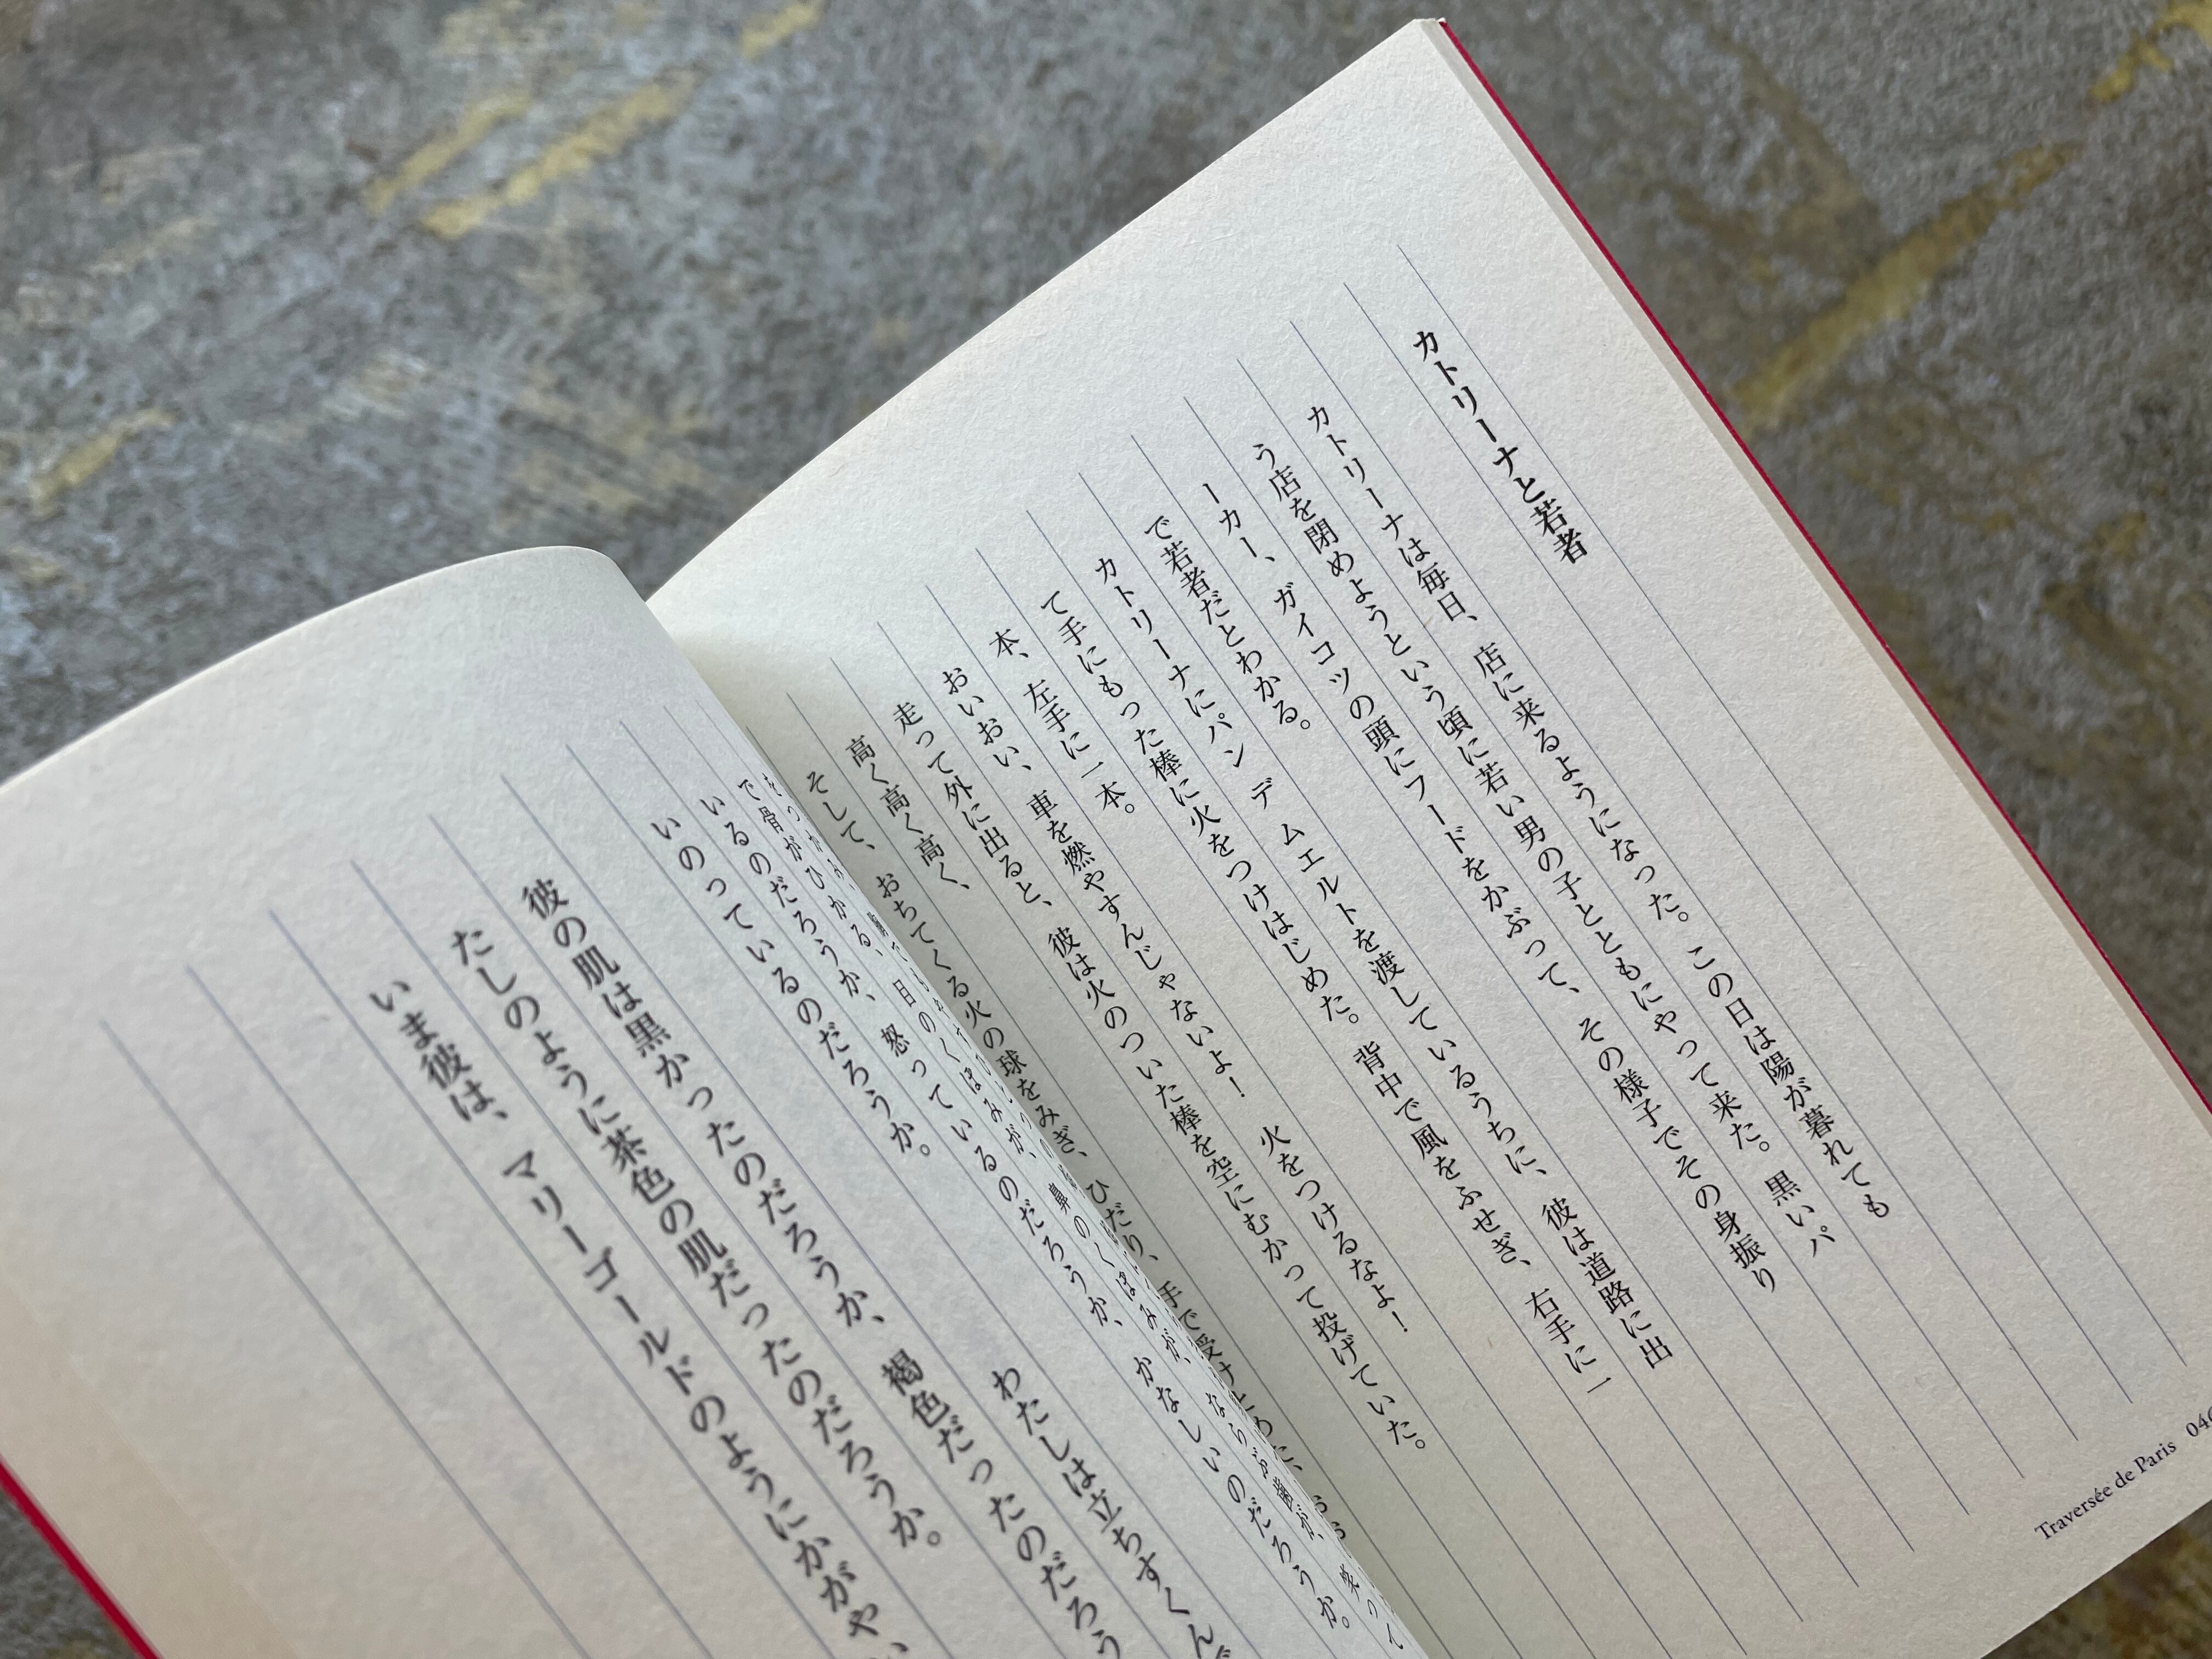 カトリーナと若者
カトリーナは毎日、店に来るようになった。この日は陽が暮れても
う店を閉めようという頃に若い男の子とともにやって来た。黒いパ
ーカー、ガイコツの頭にフードをかぶって、その様子でその身振り
で若者だとわかる。
カトリーナにパン デ ムエルトを渡しているうちに、彼は道路に出
て手にもった棒に火をつけはじめた。背中で風をふせぎ、右手に一
本、左手に一本。
おいおい、車を燃やすんじゃないよ! 火をつけるなよ!
走って外に出ると、彼は火のついた棒を空にむかって投げていた。
高く高く高く、
そして、おちてくる火の球をみぎ、ひだり、手で受けとめた、
Traversée de Paris
で骨がひかる、目のくぼみが、鼻のくぼみが、ならぶ歯が、
いるのだろうか、怒っているのだろうか、かなしいのだろうか。
いのっているのだろうか。
わたしは立ちすくん
彼の肌は黒かったのだろうか、褐色だったのだろう
たしのように茶色の肌だったのだろうか。
いま彼は、マリーゴールドのようにかがや